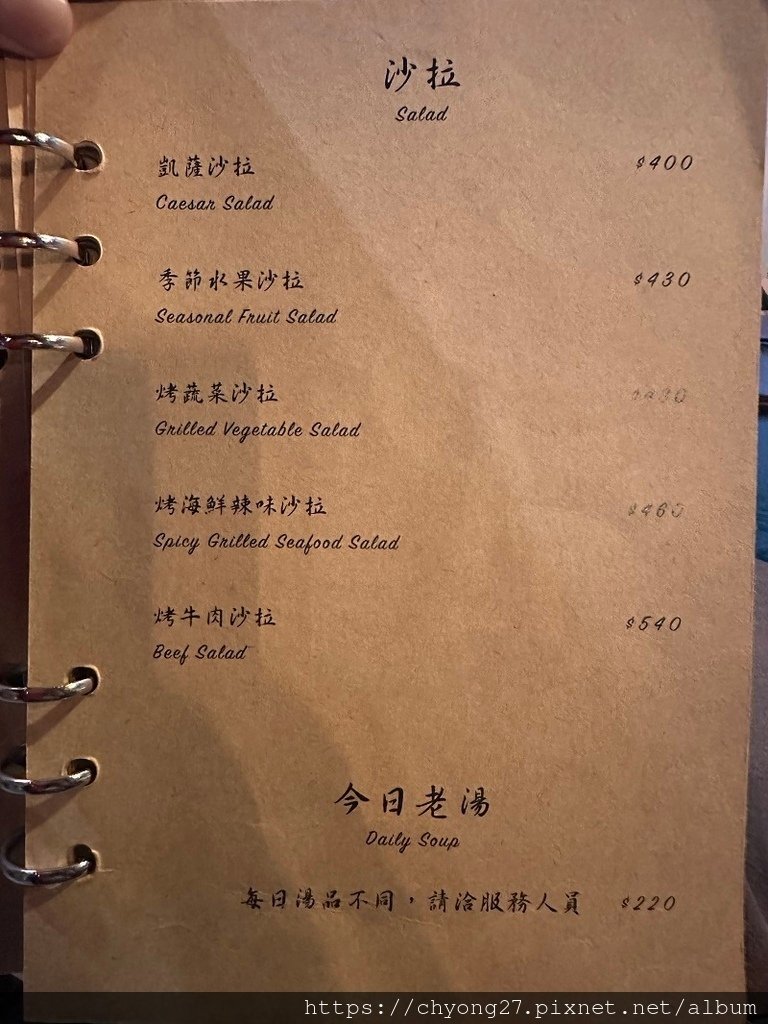 沙拉
Salad
凱薩沙拉 $400
Caesar Salad
季節水果沙拉 $430
Seasonal Fruit Salad
烤蔬菜沙拉 $430
Grilled Vegetable Salad
烤海鮮辣味沙拉 $460
Spicy Grilled Seafood Salad
烤牛肉沙拉 $540
Beef Salad
今日老湯
Daily Soup
每日湯品不同，請洽服務人員 $220
https://chyong27.pixnet.net/album